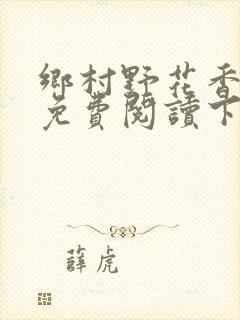 鄉村野花香
免費閱讀下
薛虎